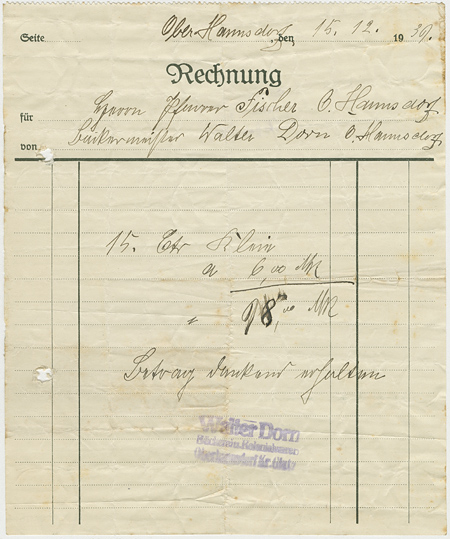 Seite Ober Hannsdorf, den 15. 12. 1939.
Rechnung
für Herrn Pfarrer Fischer O. Hannsdorf
von Bäckermeister Walter Dorn O. Hannsdorf
15. Ctr Kleie
a 6,00 Mk
98,00 Mk
Betrag dankend erhalten
Walter Dorn
Bäckerei u. Kolonialwaren
Oberhannsdorf Kr. Glatz